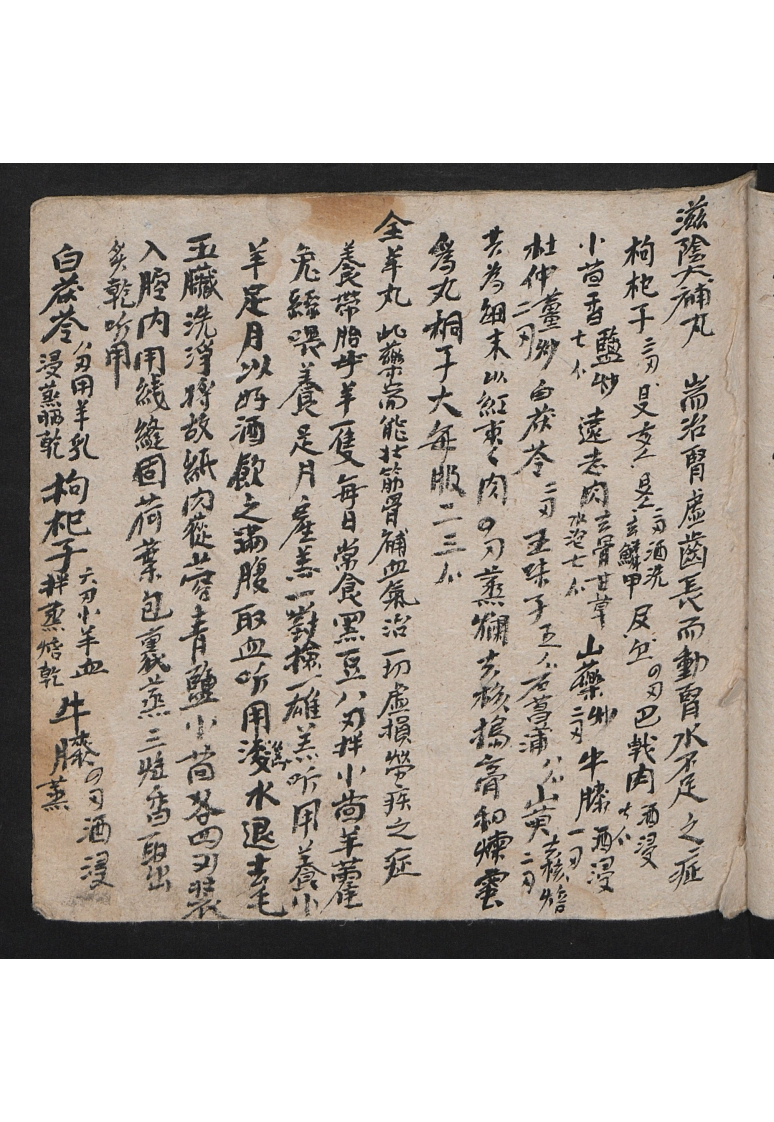 滋陰大補丸 耑治腎虛齒長而動腎水不足之症
枸杞子二刃 三刃酒洗去鱗甲 四刃巴戟肉酒浸七介
小茴香鹽炒七介 遠志肉去骨甘草水泡七介 山藥炒二刃 牛膝酒浸一刃
杜仲薑炒二刃 白茯苓二刃 五味子五介 石菖蒲八介 山萸去核焙二刃
共為細末以紅棗肉四刃蒸爛去核搗膏和煉蜜
為丸桐子大每服二三介
全羊丸 此藥耑能壯筋骨補血氣治一切虛損勞疾之症
養帶胎牛羊一隻每日常食黑豆八刃拌小茴羊藿
兔絲喂養足月產羔一對撿一雄羔听用養小
羊足月以好酒飲之滿腹取血听用滾水退去毛
五臟洗淨將故紙肉蓯蓉青鹽小茴各四刃裝
入腔內用線縫固荷葉包裹蒸三炷香取出
炙乾听用
白茯苓 刃用羊乳浸蒸晒乾 枸杞子六刃小羊血拌蒸焙乾 牛膝四刃酒浸蒸